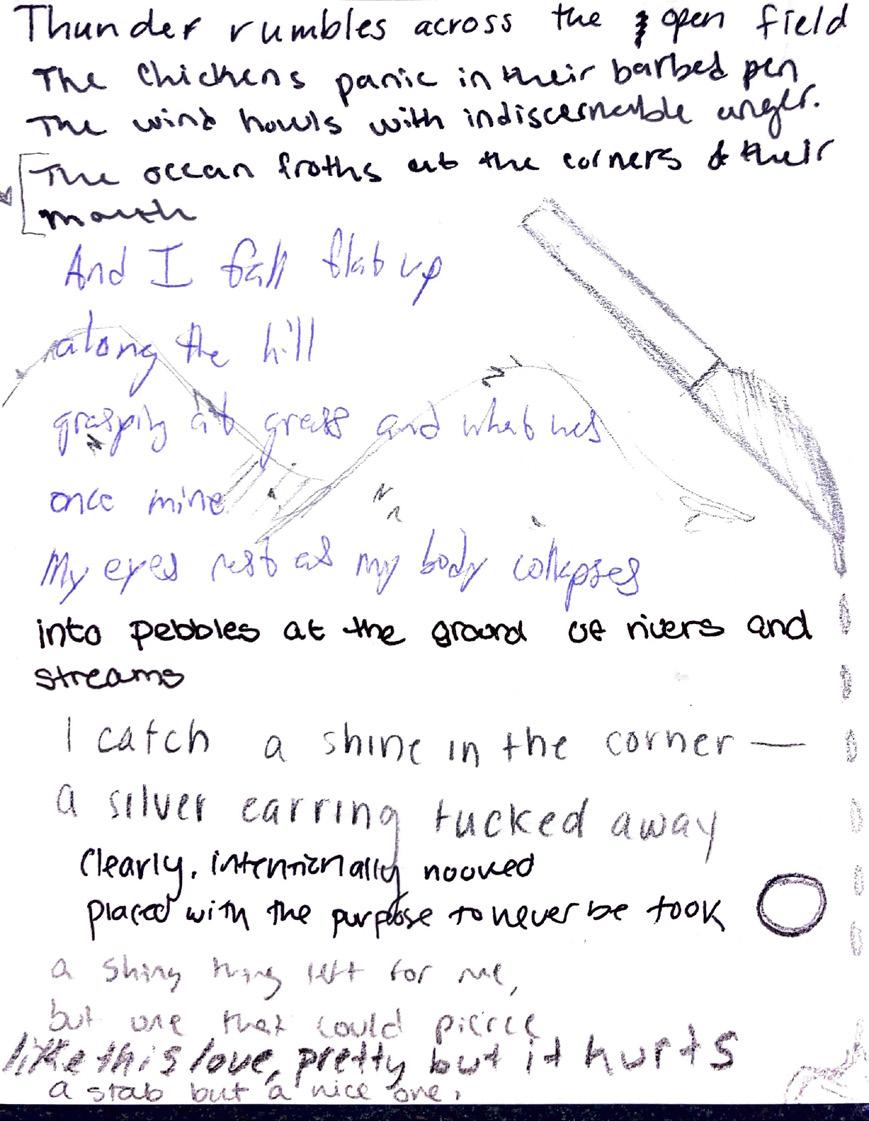 Thunder rumbles across the open field
The chickens panic in their barbed pen
The wind howls with indiscernable anger.
The ocean froths at the corners of their
mouth
And I fall flat up
along the hill
grasping at grass and what was
once mine
My eyes rest as my body collapses
into pebbles at the ground of rivers and
streams
I catch a shine in the corner —
a silver earring tucked away
Clearly, intentionally nooved
placed with the purpose to never be took
a shiny thing left for me,
but one that could pierce
like this love, pretty but it hurts
a stab but a nice one,